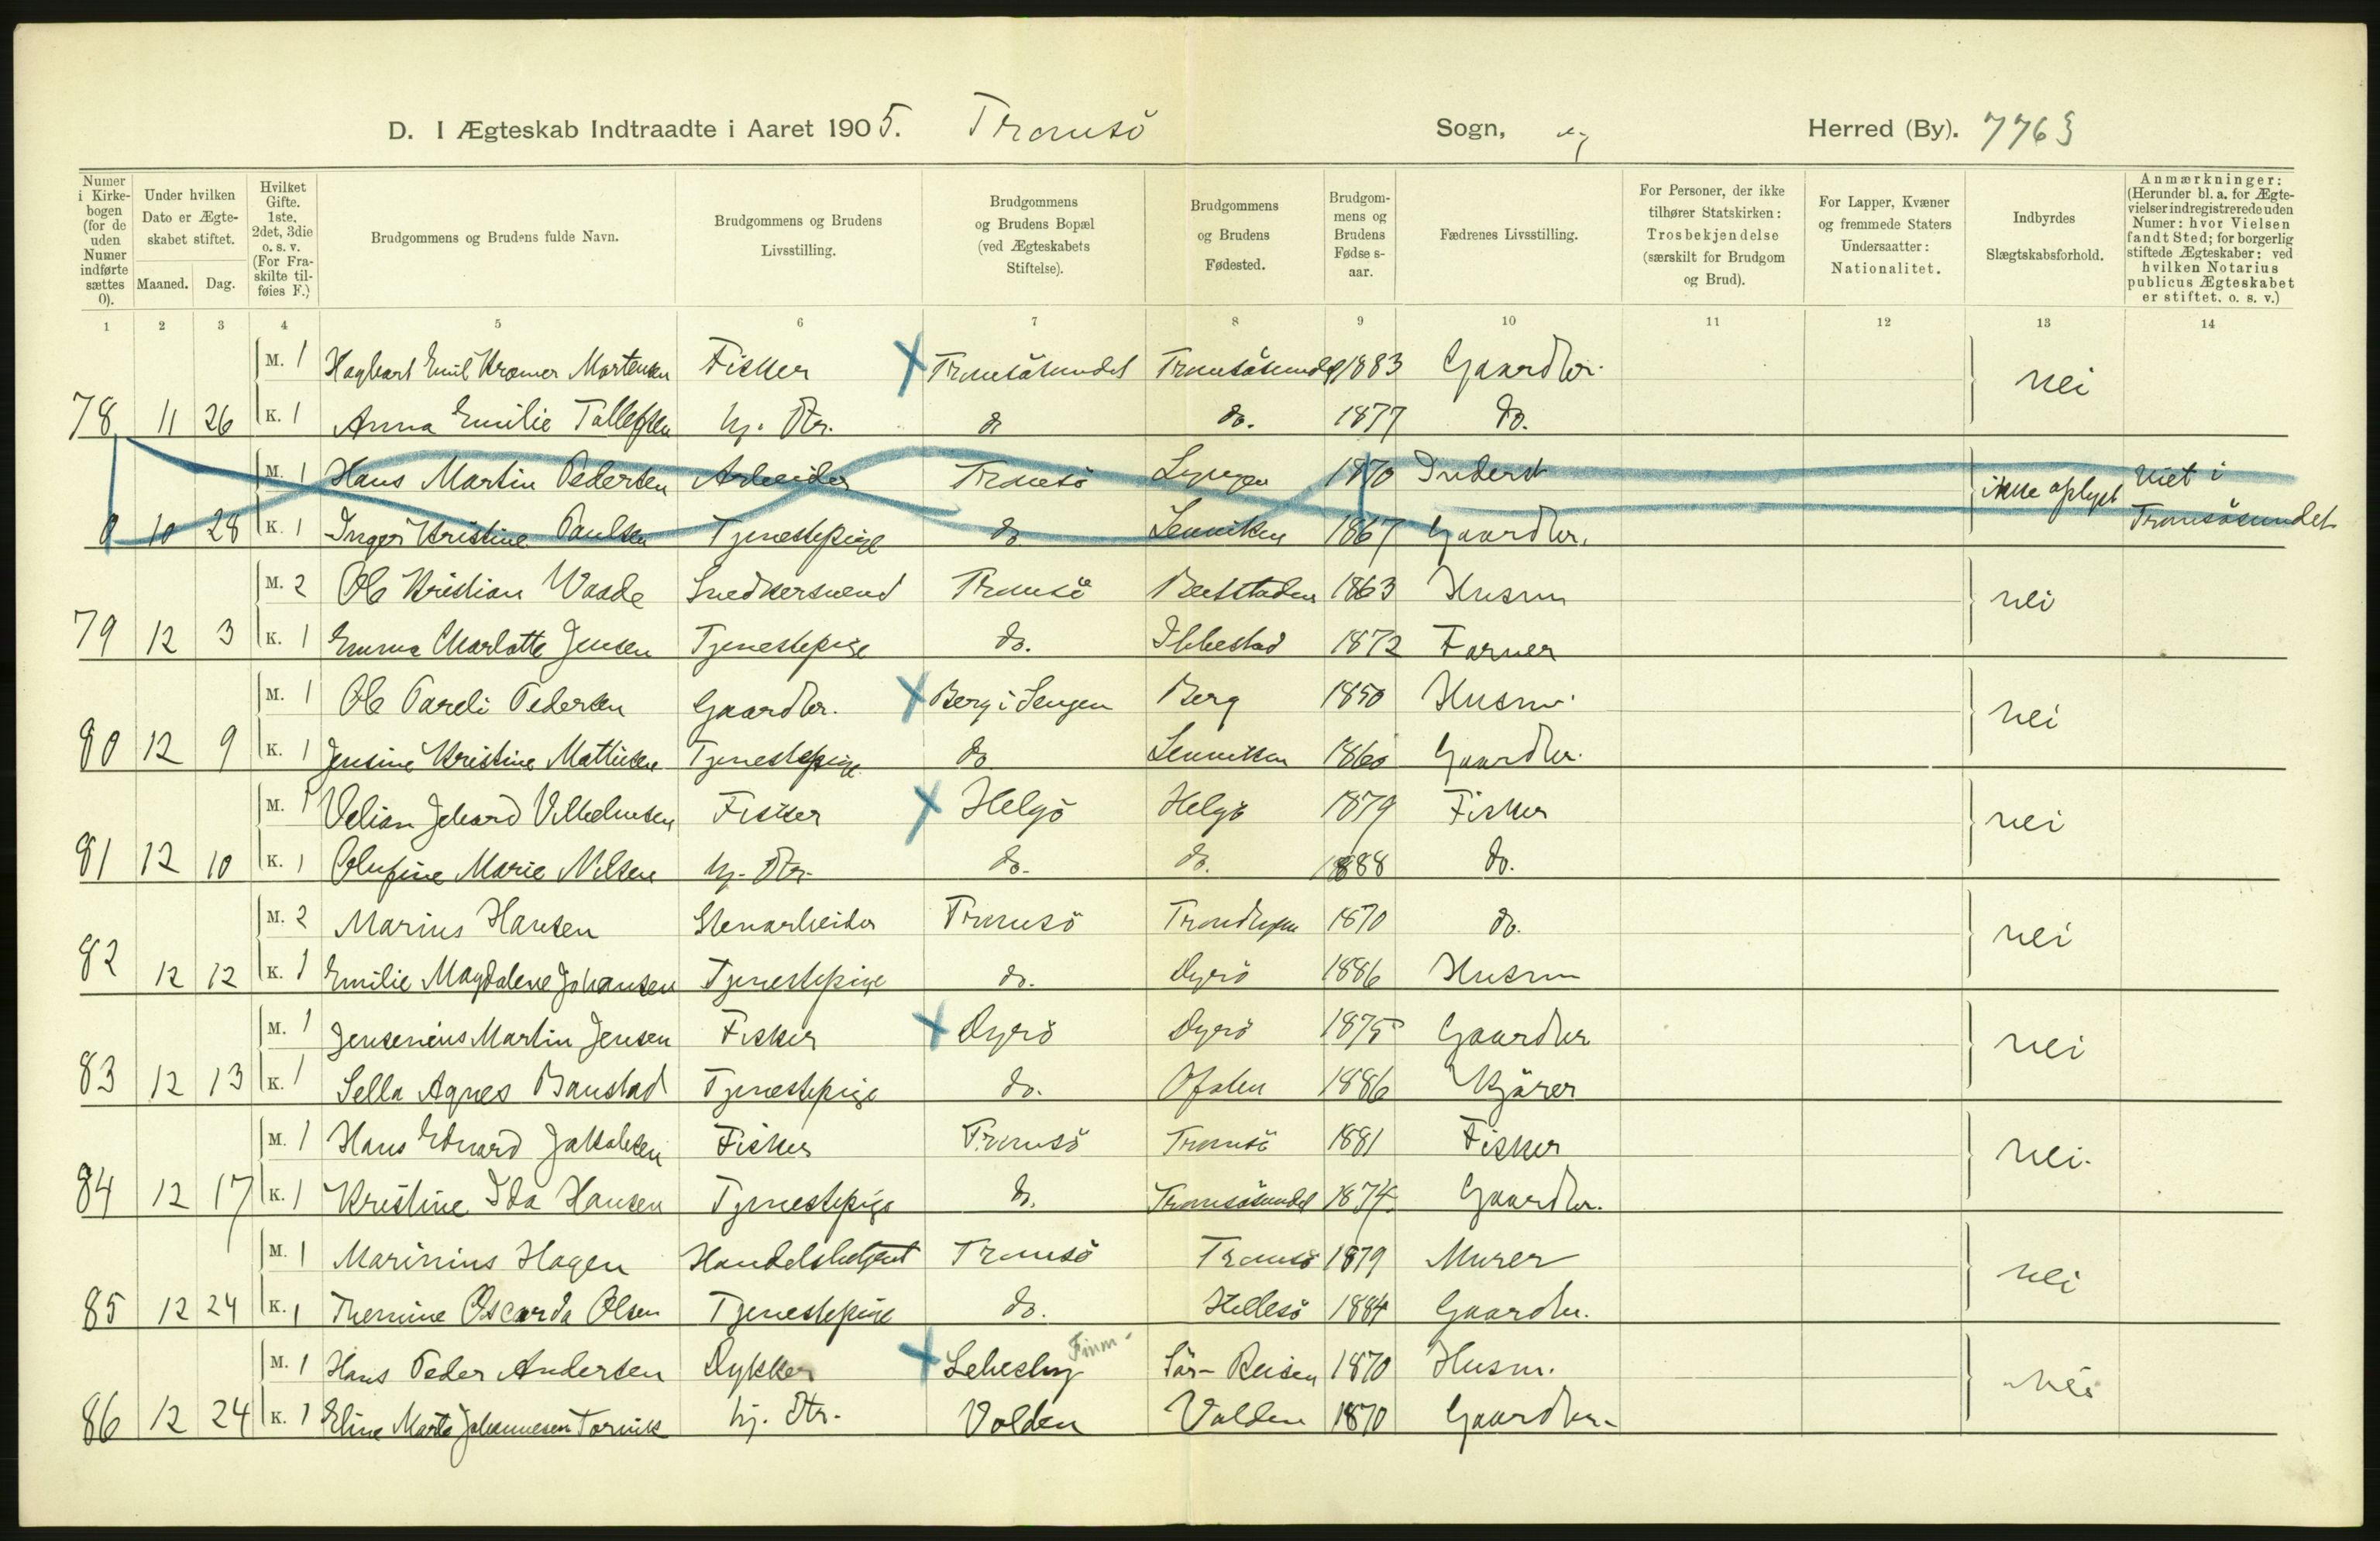 D. I Ægteskab Indtraadte i Aaret 1905. Tromsö Sogn, Herred (By). 776
Numer i Kirkebogen (for de uden Numer indførte sættes 0).
Under hvilken Dato er Ægteskabet stiftet. Maaned. Dag.
Hvilket Gifte. 1ste, 2det, 3die o. s. v. (For Fraskilte tilføies F.)
Brudgommens og Brudens fulde Navn.
Brudgommens og Brudens Livsstilling.
Brudgommens og Brudens Bopæl (ved Ægteskabets Stiftelse).
Brudgommens og Brudens Fødested.
Brudgommens og Brudens Fødselsaar.
Fædrenes Livsstilling.
For Personer, der ikke tilhører Statskirken: Trosbekjendelse (særskilt for Brudgom og Brud).
For Lapper, Kvæner og fremmede Staters Undersaatter: Nationalitet.
Indbyrdes Slægtskabsforhold.
Anmærkninger: (Herunder bl. a. for Ægtevielser indregistrerede uden Numer: hvor Vielsen fandt Sted; for borgerlig stiftede Ægteskaber: ved hvilken Notarius publicus Ægteskabet er stiftet. o. s. v.)
1 2 3 4 5 6 7 8 9 10 11 12 13 14
M. 1 Hagbart Emil Kromer Mortensen Fisker X Tromsösundet Tromsösundet 1883 Gaardbr. nei
78 11 26 K. 1 Anna Emilie Tollefsen hj. Dtr. do do. 1877 do.
M. 1 Hans Martin Pedersen Arbeider Tromsö Lyngen 1870 Inderst ikke oplyst Viet i
0 10 28 K. 1 Inger Kristine Paulsen Tjenestepige do Lenviken 1867 Gaardbr. Tromsösundet
M. 2 Ole Kristian Waade Snedkersvend Tromsö 1863 Husm nei
79 12 3 K. 1 Emma Charlotte Jensen Tjenestepige do. Ibbestad 1872 Farver
M. 1 Ole Pareli Pedersen Gaardbr. X Berg i Senjen Berg 1850 Husm. nei
80 12 9 K. 1 Jensine Kristine Mathisen Tjenestepige do Lenviken 1860 Gaardbr.
M. 1 Edvard Vilhelmsen Fisker X Helgö Helgö 1879 Fisker nei
81 12 10 K. 1 Olufine Marie Nilsen hj. Dtr. do. do. 1888 do.
M. 2 Marius Hansen Stenarbeider Tromsö Trondhjem 1870 do. nei
82 12 12 K. 1 Emilie Magdalene Johansen Tjenestepige do. Dyrö 1886 Husm
M. 1 Jensenius Martin Jensen Fisker X Dyrö Dyrö 1875 Gaardbr nei
83 12 13 K. 1 Sella Agnes Banstad Tjenestepige do. Ofoten 1886 Kjörer
M. 1 Hans Edvard Jakobsen Fisker Tromsö Tromsö 1881 Fisker nei.
84 12 17 K. 1 Kristine Ida Hansen Tjenestepige do. Tromsösundet 1874 Gaardbr.
M. 1 Marinius Hagen Handelsbetjent Tromsö Tromsö 1879 Murer nei
85 12 24 K. 1 Oscarda Olsen Tjenestepige do. Hillesö 1884 Gaardbr.
M. 1 Hans Peder Andersen Dykker X Lebesby Finm- Sör-Reisen 1870 Husm. nei
86 12 24 K. 1 Eline Marta Johannesen Torvik hj. Dtr. Volden Volden 1870 Gaardbr.